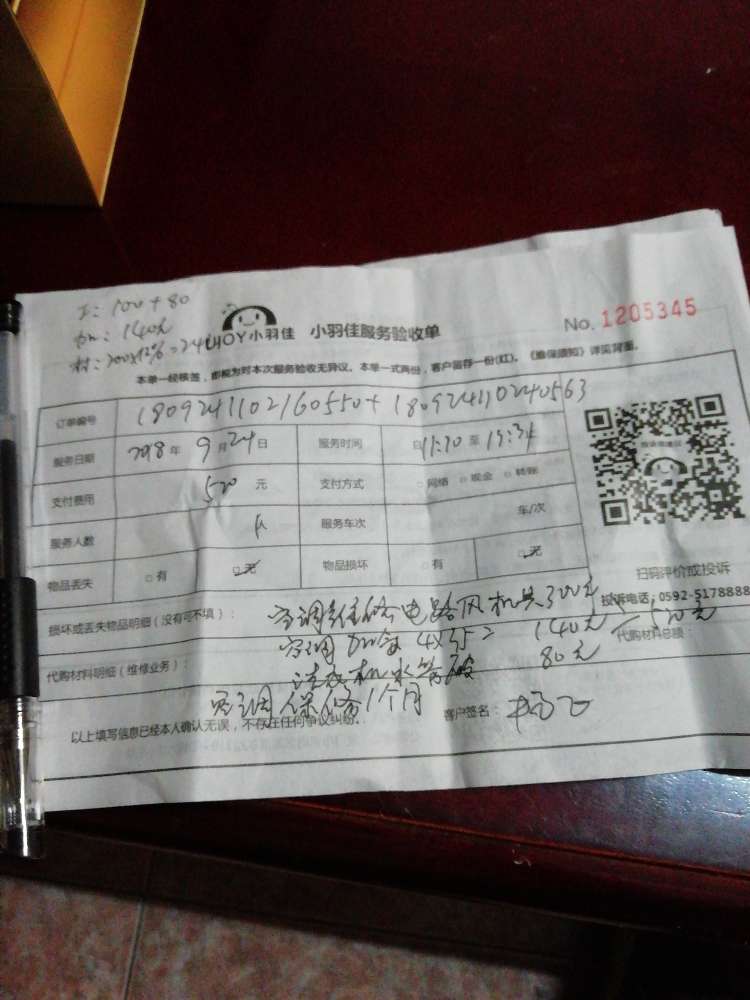 工: 100+80
加: 140元
材: 200x12%=24
CHOY小羽佳 小羽佳服务验收单 No. 1205345
本单一经核签，即视为对本次服务验收无异议。本单一式两份，客户留存一份(红)。《维保须知》详见背面。
订单编号 1809241102160550+180924110240563
服务日期 2018年9月24日 服务时间 自11:30至
支付费用 520元 支付方式 □网络 □现金 □转账
服务人数 服务车次 车/次
物品丢失 □有 □无 物品损坏 □有 □无
扫码评价或投诉
投诉电话：0592-5178888
损坏或丢失物品明细（没有可不填）： 空调维修电路风机共300元
空调加氟4x35= 140元 520元
代购材料明细（维修业务）： 洗衣机水管破 80元 代购材料总额：
空调保修1个月
以上填写信息已经本人确认无误，不存在任何争议纠纷。 客户签名：